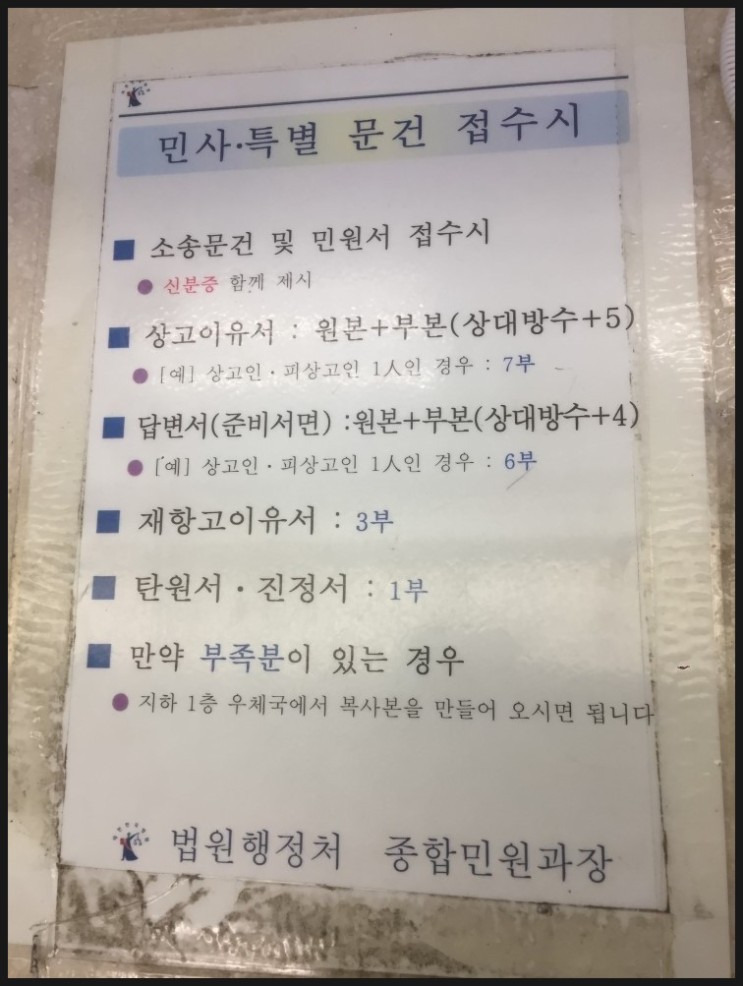 민사·특별 문건 접수시
■ 소송문건 및 민원서 접수시
● 신분증 함께 제시
■ 상고이유서 : 원본+부본(상대방수+5)
● [예] 상고인·피상고인 1人인 경우 : 7부
■ 답변서(준비서면) :원본+부본(상대방수+4)
● [예] 상고인·피상고인 1人인 경우 : 6부
■ 재항고이유서 : 3부
■ 탄원서·진정서 : 1부
■ 만약 부족분이 있는 경우
● 지하 1층 우체국에서 복사본을 만들어 오시면 됩니다
법원행정처 종합민원과장